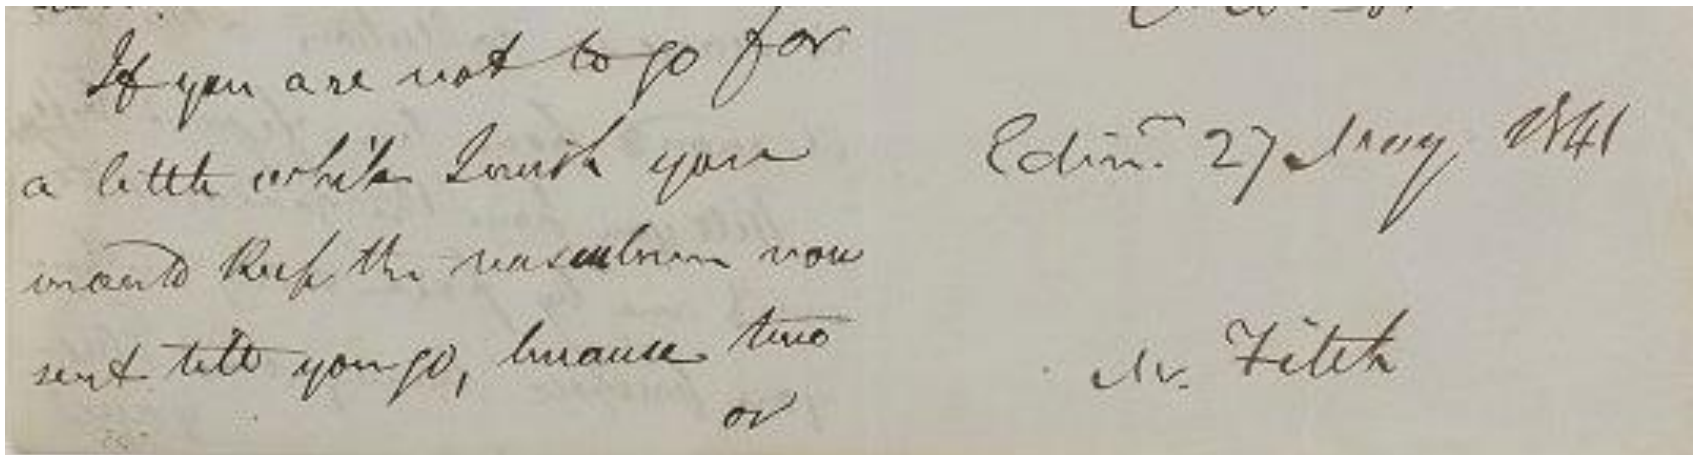 If you are not to go for
a little while I wish you
would keep the vasculum now
sent till you go, because two
or
Edinr. 27 May 1841
Mr. Fitch